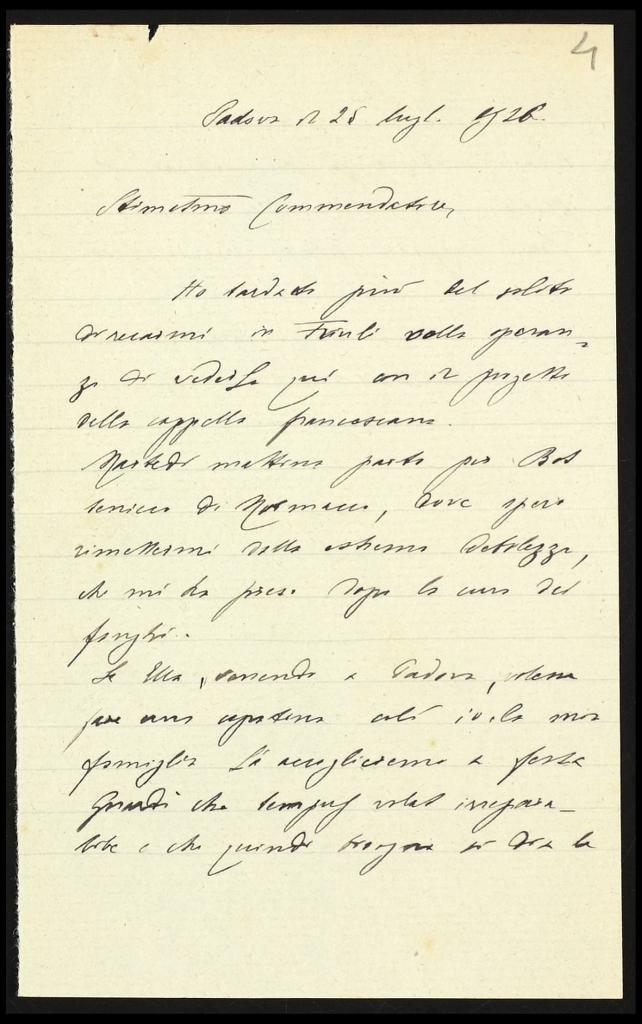 4
Padova il 25 lugl. 1926.
Stimatmo Commendatore,
Ho tardato più del solito
di recarmi in Friuli nella speran-
za di vederLa qui con il progetto
della cappella francescana.
Martedì mattina parto per Bot
tenicco di Moimacco, dove spero
rimettermi dalla estrema debolezza,
che mi ha preso dopo la cura dei
fanghi.
Se Ella, venendo a Padova, volesse
fare una capatina colà io e la mia
famiglia La accoglieremo a festa
Guardi che tempus volat irrepara-
bile e che quindi bisogna si dia la